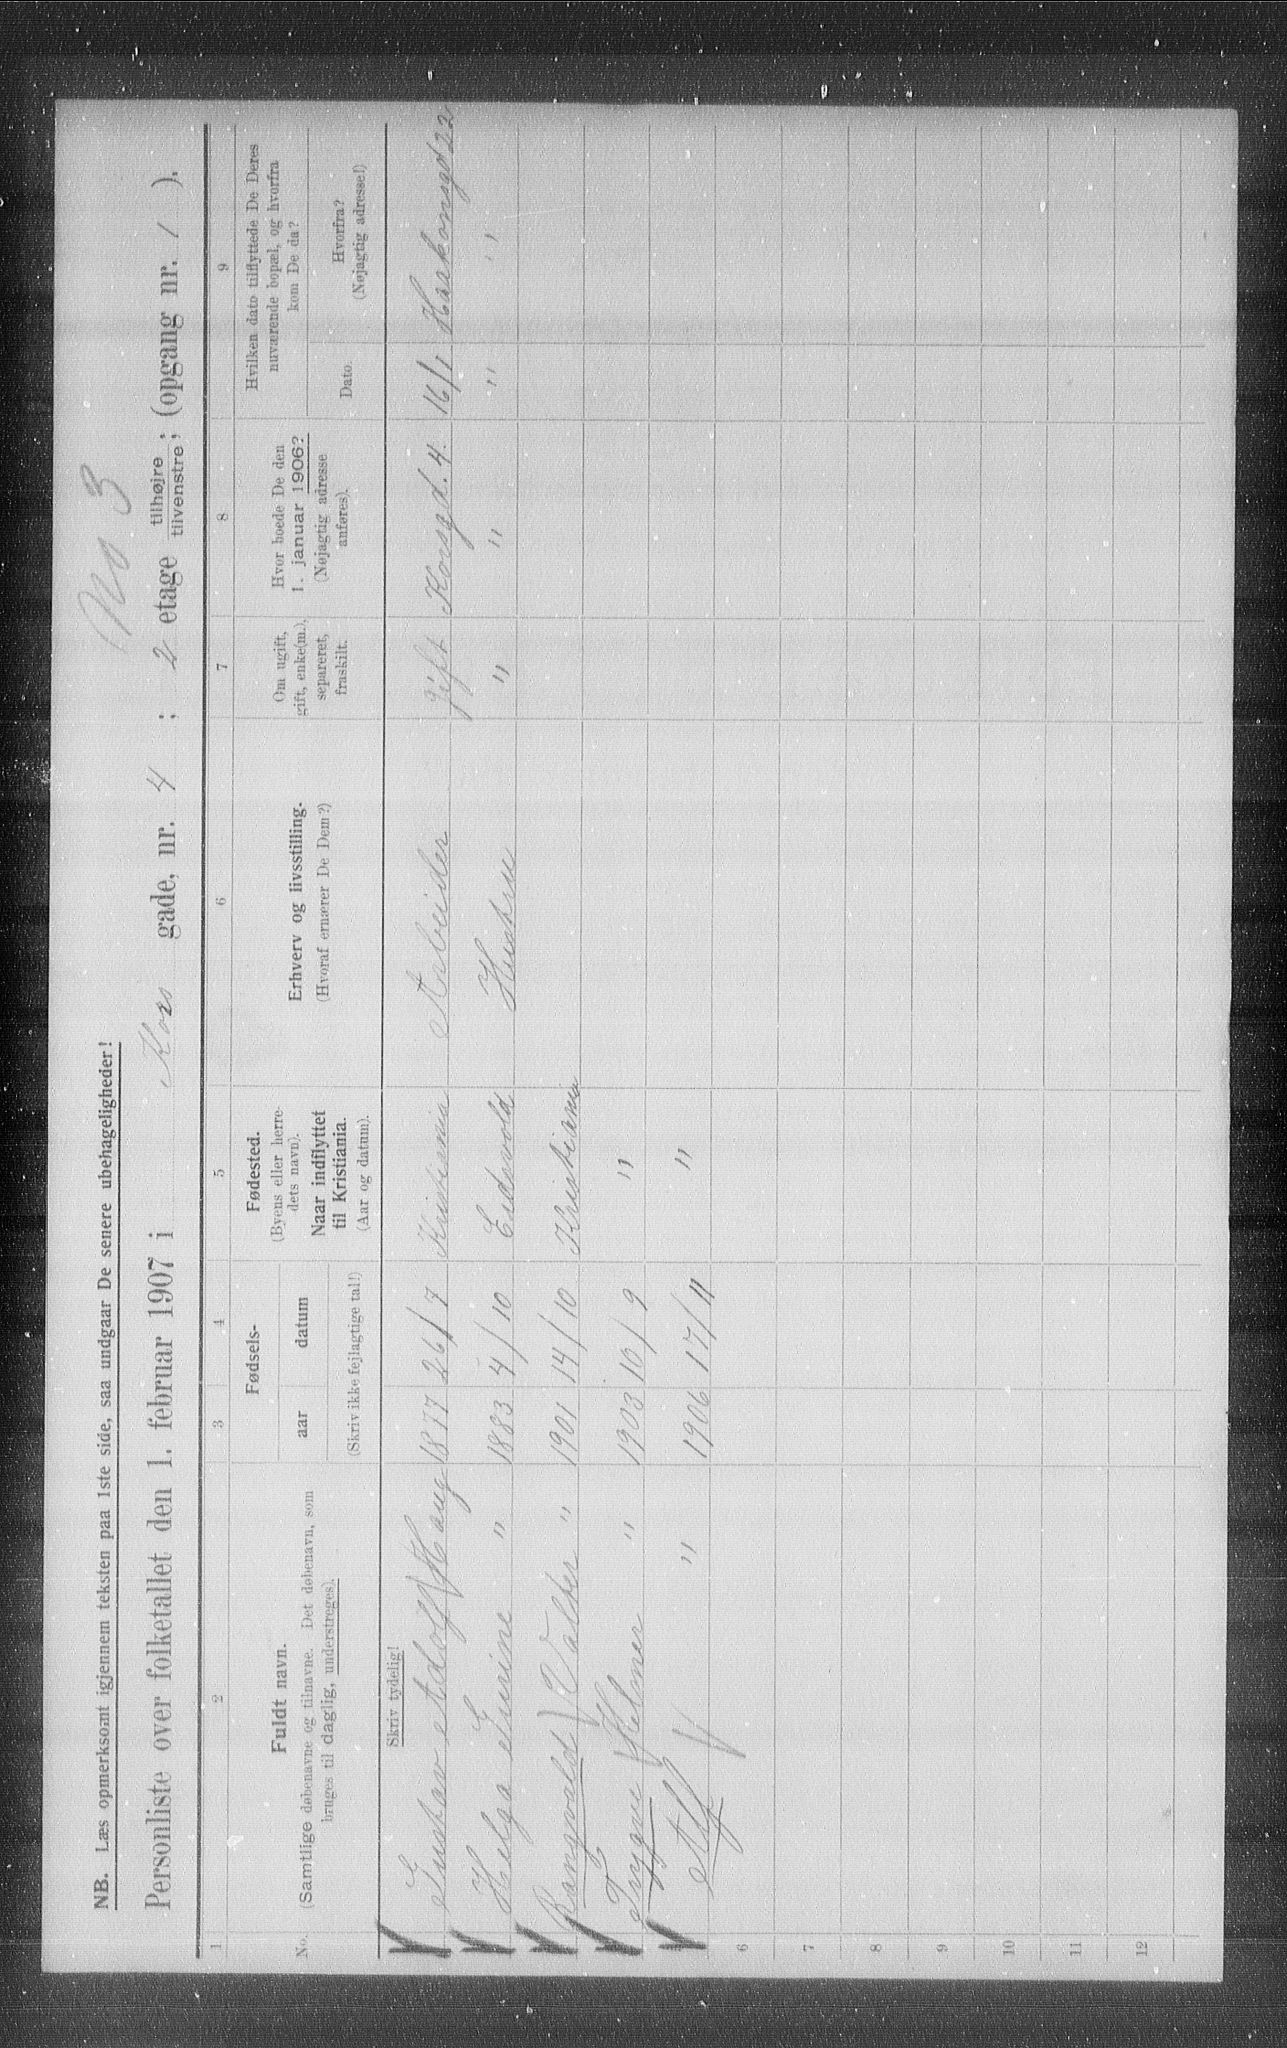 No 3
NB. Læs opmerksomt igjennem teksten paa 1ste side, saa undgaar De senere ubehageligheder!
Personliste over folketallet den 1. februar 1907 i Kors gade, nr. 4 ; 2 etage tilhøjre tilvenstre; (opgang nr. 1 ).
1 2 3 4 5 6 7 8 9
No.
Fuldt navn.
(Samtlige døbenavne og tilnavne. Det døbenavn, som
bruges til daglig, understreges).
Fødsels-
aar datum
(Skriv ikke fejlagtige tal!)
Fødested.
(Byens eller herre-
dets navn).
Naar indflyttet
til Kristiania.
(Aar og datum).
Erhverv og livsstilling.
(Hvoraf ernærer De Dem?)
Om ugift,
gift, enke(m.),
separeret,
fraskilt.
Hvor boede De den
1. januar 1906?
(Nøjagtig adresse
anføres).
Hvilken dato tilflyttede De Deres
nuværende bopæl, og hvorfra
kom De da?
Dato.
Hvorfra?
(Nøjagtig adresse!)
Skriv tydelig!
Gustav Adolf Haug 1877 26/7 Kristiania Arbeider gift Korsgd. 4. 16/1 Haakonsgd 22
Helga " 1883 4/10 Eidsvold Hustru " " " "
Rangvald Valter " 1901 14/10 Kristiania
Trygve Helmer " 1903 16/9 "
Alf " 1906 17/11 "
6
7
8
9
10
11
12